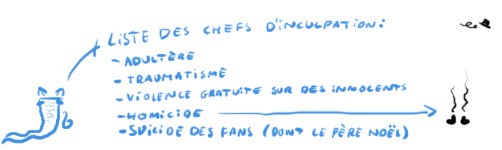 LISTE DES CHEFS D'INCULPATION:
- ADULTÈRE
- TRAUMATISME
- VIOLENCE GRATUITE SUR DES INNOCENTS
- HOMICIDE
- SUICIDE DES FANS (DONT LE PÈRE NOËL)